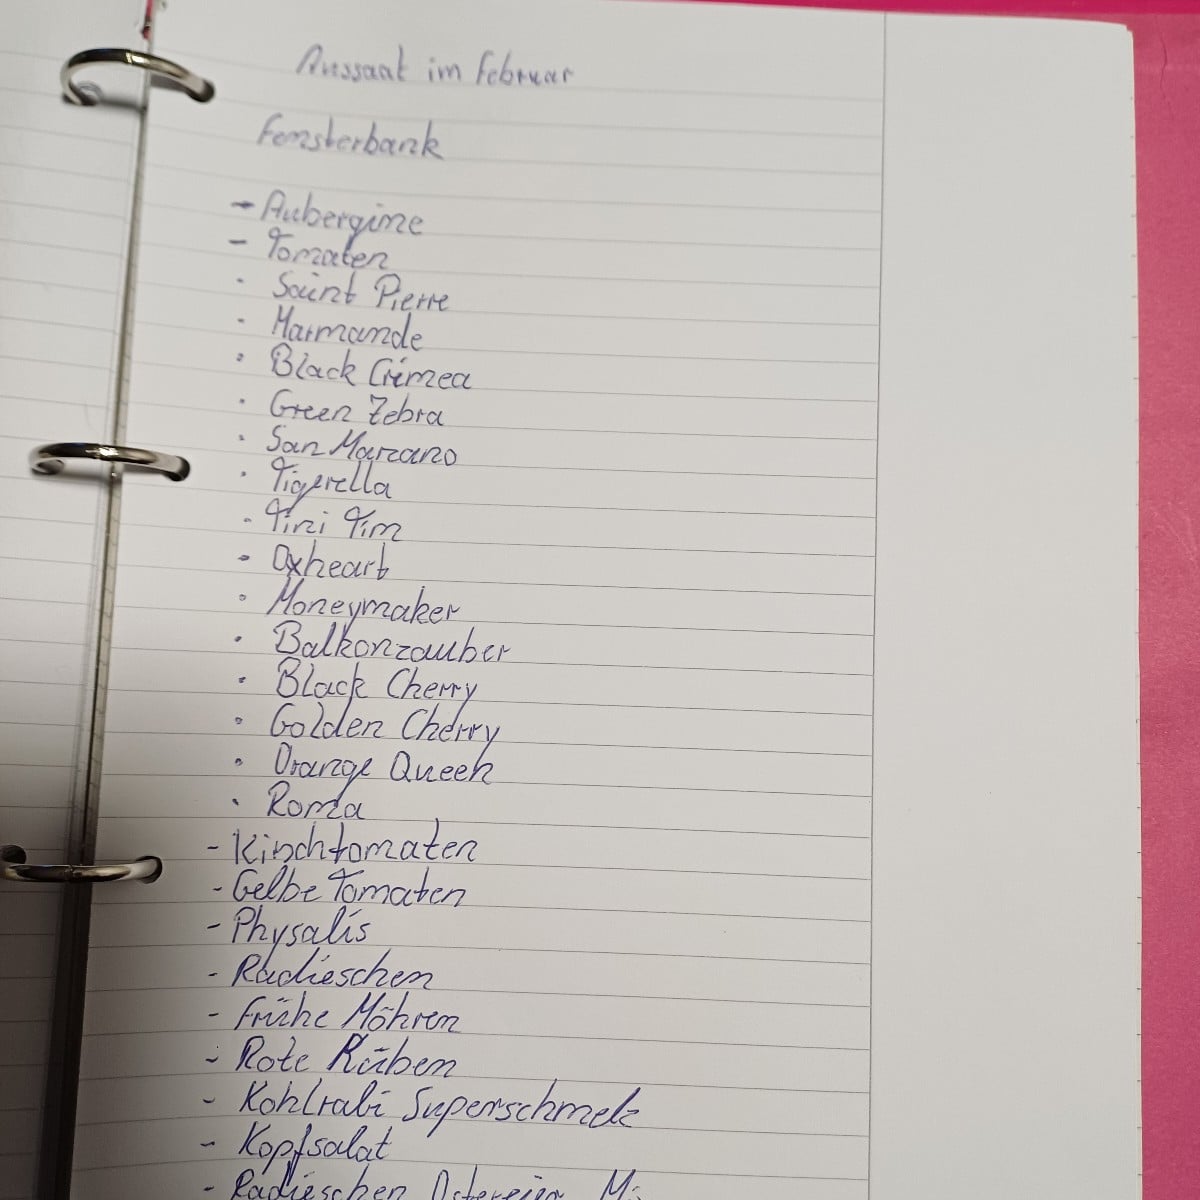 Aussaat im Februar
Fensterbank
- Aubergine
- Tomaten
· Saint Pierre
· Marmande
· Black Crimea
· Green Zebra
· San Marzano
· Tigerella
· Tini Tim
· Oxheart
· Moneymaker
· Balkonzauber
· Black Cherry
· Golden Cherry
· Orange Queen
· Roma
- Kirschtomaten
- Gelbe Tomaten
- Physalis
- Radieschen
- Frühe Möhren
- Rote Rüben
- Kohlrabi Superschmelz
- Kopfsalat
- Radieschen Ostereier